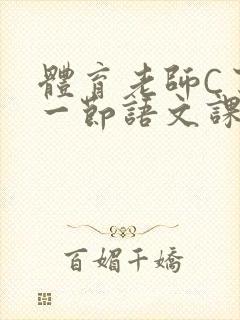 體育老師C
一節語文課
百媚千嬌